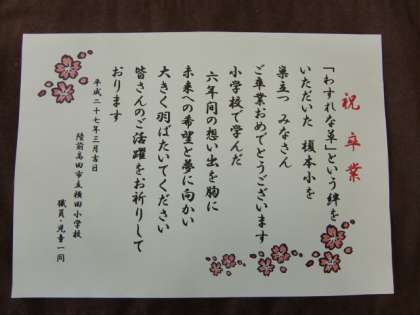 祝 卒業
「わすれな草」という絆を
いただいた 榎本小を
巣立つ みなさん
ご卒業おめでとうございます
小学校で学んだ
六年間の想い出を胸に
未来への希望と夢に向かい
大きく羽ばたいてください
皆さんのご活躍をお祈りして
おります
平成二十七年三月吉日
陸前高田市立横田小学校
職員・児童一同